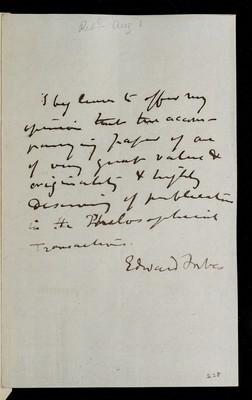 Recd Aug 1
I beg leave to offer my
opinion that the accom-
panying paper
of very great value &
originality & highly
deserving of publication
in the Philosophical
Transactions.
Edward Forbes
228